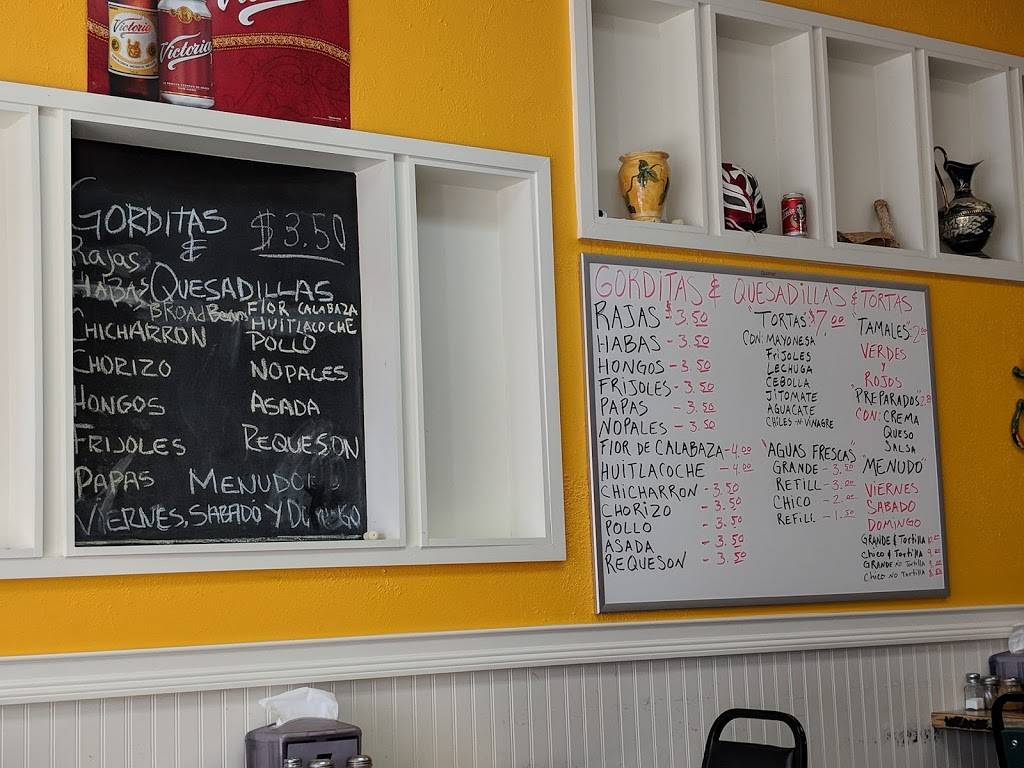 Victoria
Victoria
GORDITAS $3.50
&
Rajas
HABAS QUESADILLAS
BROAD Beans FLOR CALABAZA
HUITLACOCHE
CHICHARRON POLLO
CHORIZO NOPALES
HONGOS ASADA
FRIJOLES REQUESON
PAPAS MENUDO
VIERNES, SABADO Y DOMINGO
GORDITAS & QUESADILLAS & TORTAS
RAJAS - $3.50
HABAS - 3.50
HONGOS - 3.50
FRIJOLES - 3.50
PAPAS - 3.50
NOPALES - 3.50
FLOR DE CALABAZA - 4.00
HUITLACOCHE - 4.00
CHICHARRON - 3.50
CHORIZO - 3.50
POLLO - 3.50
ASADA - 3.50
REQUESON - 3.50
"TORTAS" $7.00
CON: MAYONESA
FRIJOLES
LECHUGA
CEBOLLA
JITOMATE
AGUACATE
CHILES -N- VINAGRE
"AGUAS FRESCAS"
GRANDE - 3.50
REFILL - 3.00
CHICO - 2.00
REFILL - 1.50
"TAMALES" 2.00
VERDES
Y
ROJOS
"PREPARADOS"
CON: CREMA
QUESO
SALSA
"MENUDO"
VIERNES
SABADO
DOMINGO
GRANDE & Tortilla
CHICO & Tortilla
GRANDE NO Tortilla
CHICO NO Tortilla